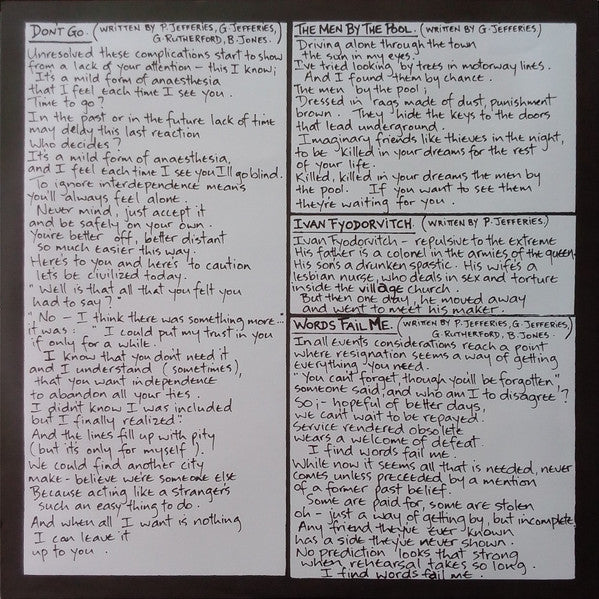 DON'T GO. (WRITTEN BY P. JEFFERIES, G. JEFFERIES,
G. RUTHERFORD, B. JONES.
Unresolved these complications start to show
from a lack of your attention - this I know;
It's a mild form of anaesthesia
that I feel each time I see you.
Time to go?
In the past or in the future lack of time
may delay this last reaction
Who decides?
It's a mild form of anaesthesia,
and I feel each time I see you I'll go blind.
To ignore interdependence means
you'll always feel alone.
Never mind, just accept it
and be safely on your own.
You're better off, better distant
so much easier this way.
Here's to you and here's to caution
lets be civilized today.
"Well is that all that you felt you
had to say?"
"No - I think there was something more...."
it was: "I could put my trust in you
if only for a while.
I know that you don't need it
and I understand (sometimes),
that you want independence
to abandon all your ties.
I didn't know I was included
but I finally realized".
And the lines fill up with pity
(but it's only for myself).
We could find another city
make-believe we're someone else
Because acting like a strangers
such an easy thing to do.
And when all I want is nothing
I can leave it
up to you.
THE MEN BY THE POOL. (WRITTEN BY G. JEFFERIES)
Driving alone through the town
the sun in my eyes.
I've tried looking by trees in motorway lines.
And I found them by chance.
The men by the pool;
Dressed in rags made of dust, punishment
brown. They hide the keys to the doors
that lead underground.
Imaginary friends like thieves in the night,
to be killed in your dreams for the rest
of your life.
Killed, killed in your dreams the men by
the pool. If you want to see them
they're waiting for you.
IVAN FYODORVITCH. (WRITTEN BY P. JEFFERIES)
Ivan Fyodorvitch - repulsive to the extreme
His father is a colonel in the armies of the queen.
His son's a drunken spastic. His wife's a
lesbian nurse, who deals in sex and torture
inside the village church.
But then one day, he moved away
and went to meet his maker.
WORDS FAIL ME. (WRITTEN BY P. JEFFERIES, G. JEFFERIES,
G. RUTHERFORD, B. JONES.
In all events considerations reach a point
where resignation seems a way of getting
everything you need.
"You can't forget, though you'll be forgotten",
someone said, and who am I to disagree?
So;- hopeful of better days,
we can't wait to be repayed.
Service rendered obsolete
wears a welcome of defeat.
I find words fail me.
While now it seems all that is needed, never
comes unless preceeded by a mention
of a former past belief.
Some are paid for, some are stolen
oh - just a way of getting by, but incomplete.
Any friend they've ever known
has a side they've never shown.
No prediction looks that strong
when rehearsal takes so long.
I find words fail me.